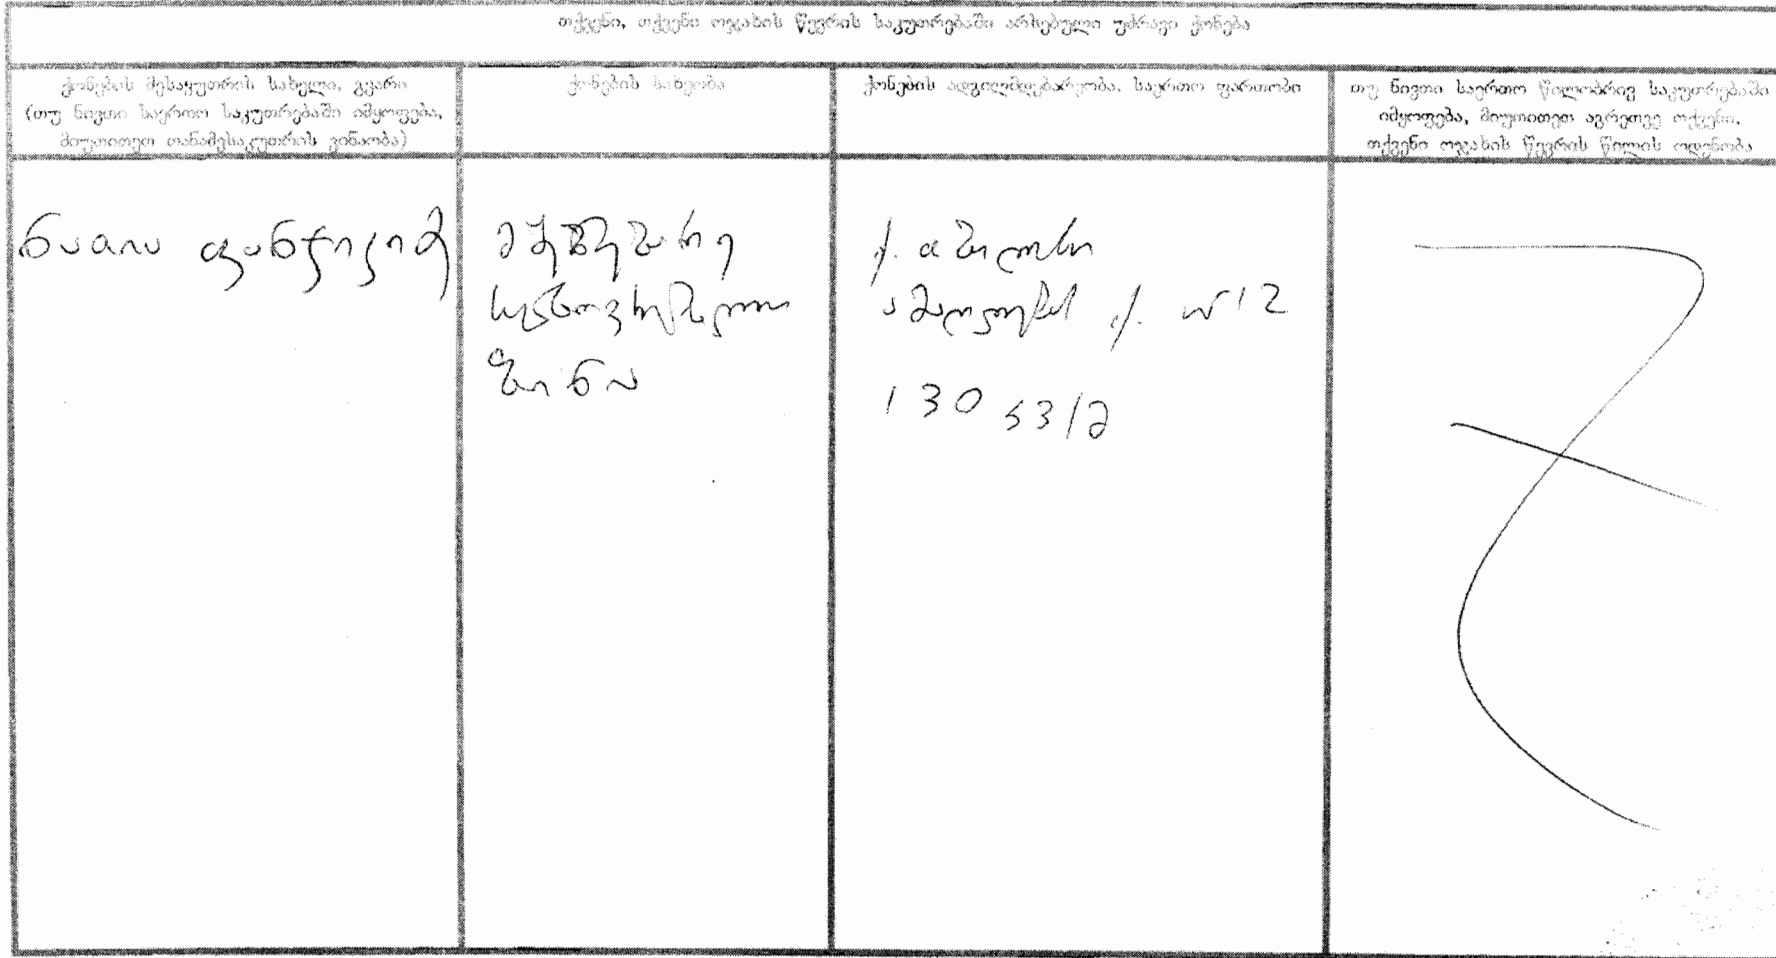 თქვენი, თქვენი ოჯახის წევრის საკუთრებაში არსებული უძრავი ქონება
ქონების მესაკუთრის სახელი, გვარი
(თუ ნივთი საერთო საკუთრებაში იმყოფება,
მიუთითეთ თანამესაკუთრის ვინაობა)
ქონების სახეობა
ქონების ადგილმდებარეობა, საერთო ფართობი
თუ ნივთი საერთო წილობრივ საკუთრებაში
იმყოფება, მიუთითეთ აგრეთვე თქვენი,
თქვენი ოჯახის წევრის წილის ოდენობა
ნათია
საცხოვრებელი
ბინა
ქ. თბილისი
ამაღლების ქ. N12
130 კვ/მ